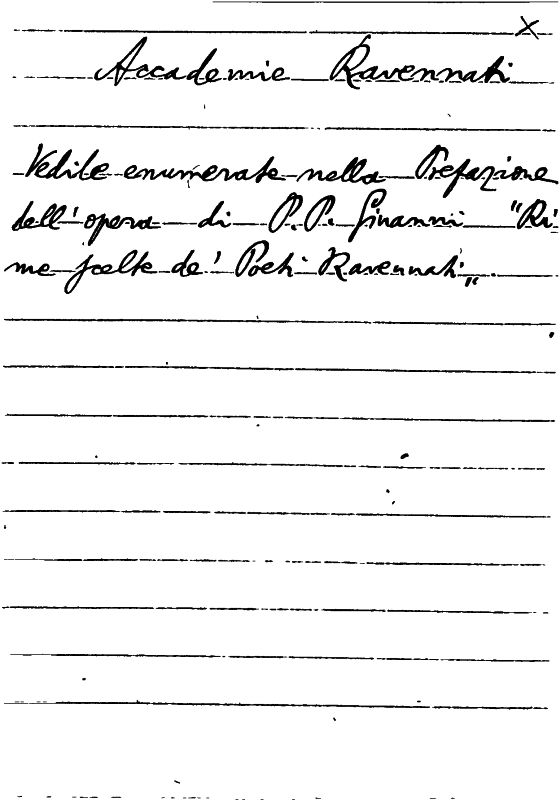 X
Accademie Ravennati
Vedile enumerate nella Prefazione
dell'opera di P.P. Ginanni "Ri
me scelte de' Poeti Ravennati".